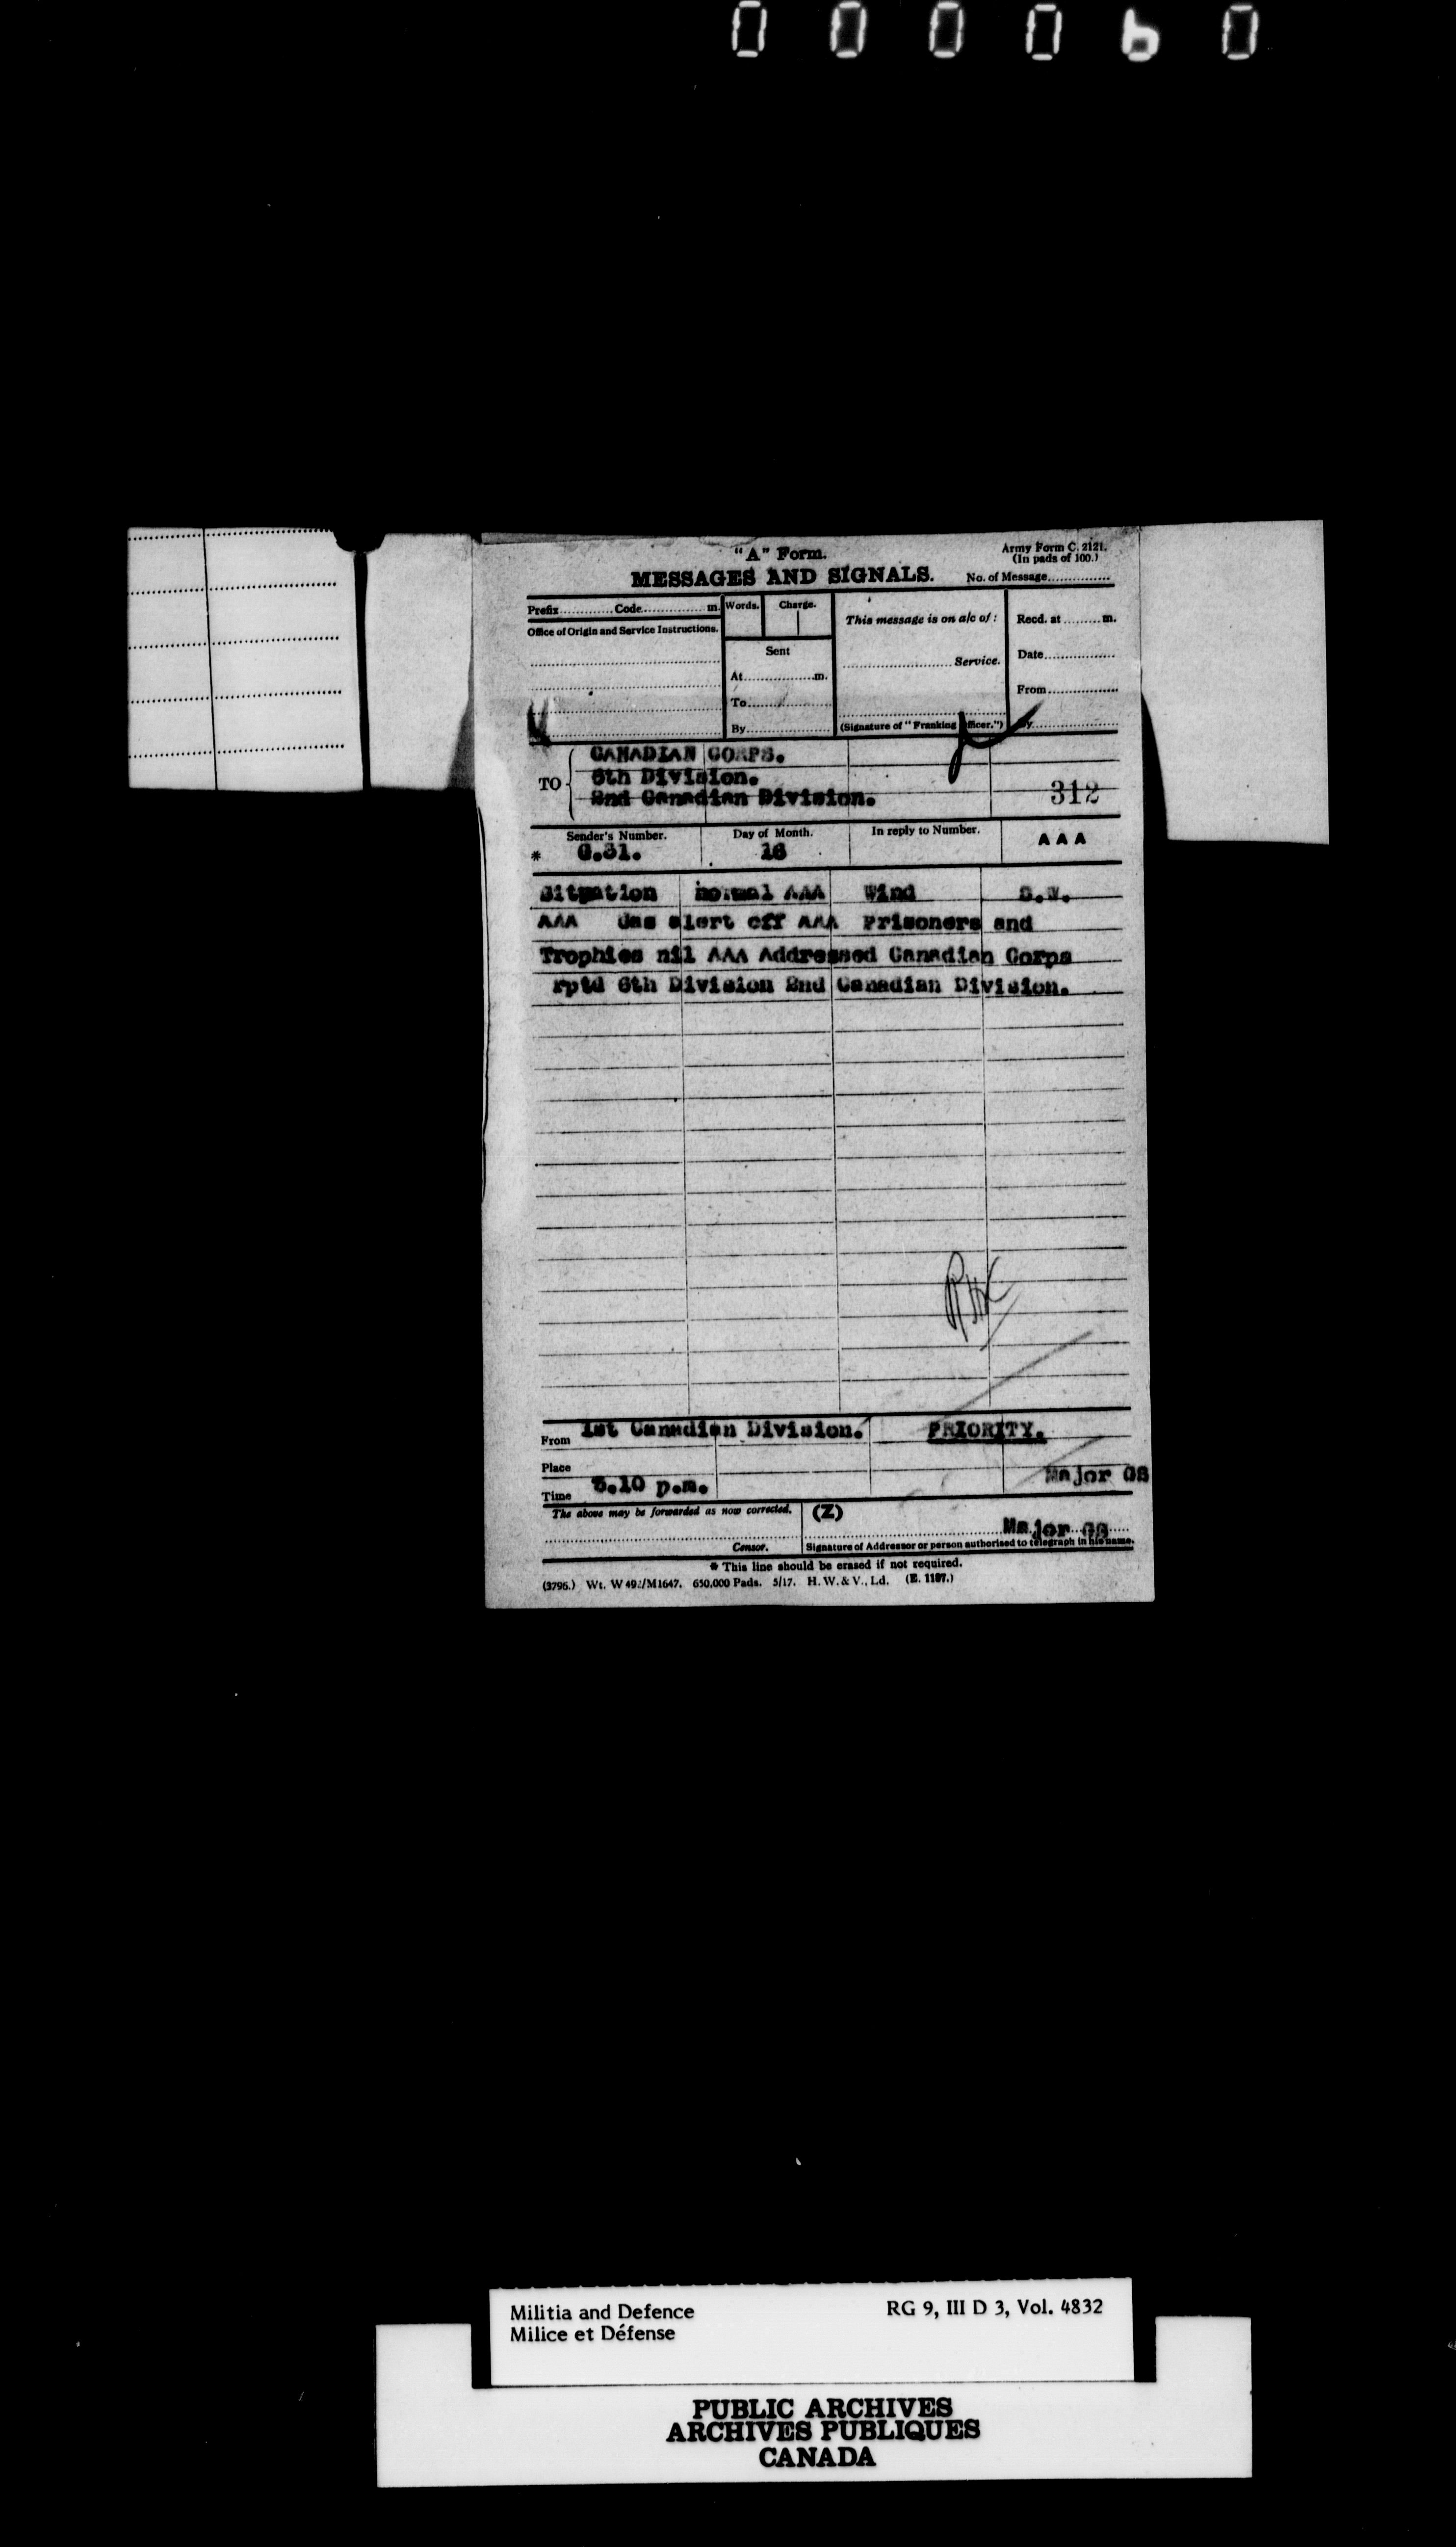 000060
"A" Form.
Army Form C. 2121.
(In pads of 100.)
MESSAGES AND SIGNALS.
No. of Message...............
Prefix.............Code................m.
Words.
Charge.
This message is on a/c of :
Recd. at .........m.
Office of Origin and Service Instructions.
Sent
........................... Service.
Date.................
At.................m.
From..................
To.....................
By......................
(Signature of "Franking Officer.")
By......................
TO
CANADIAN CORPS.
6th Division.
2nd Canadian Division.
312
Sender's Number.
Day of Month.
In reply to Number.
A A A
* G.31.
16
Situation normal AAA Wind S.W.
AAA Gas alert off AAA Prisoners and
Trophies nil AAA Addressed Canadian Corps
rptd 6th Division 2nd Canadian Division.
From 1st Canadian Division.
PRIORITY.
Place
Major GS
Time .10 p.m.
The above may be forwarded as now corrected.
(Z)
Major GS
Censor.
Signature of Addressor or person authorised to telegraph in his name.
* This line should be erased if not required.
(3796.) Wt. W 492/M1647. 650,000 Pads. 5/17. H. W. & V., Ld. (E. 1187.)
Militia and Defence
RG 9, III D 3, Vol. 4832
Milice et Défense
PUBLIC ARCHIVES
ARCHIVES PUBLIQUES
CANADA